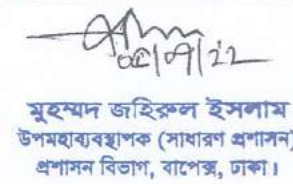 ০৫/০৭/২২
মুহম্মদ জহিরুল ইসলাম
উপমহাব্যবস্থাপক (সাধারণ প্রশাসন)
প্রশাসন বিভাগ, বাপেক্স, ঢাকা।